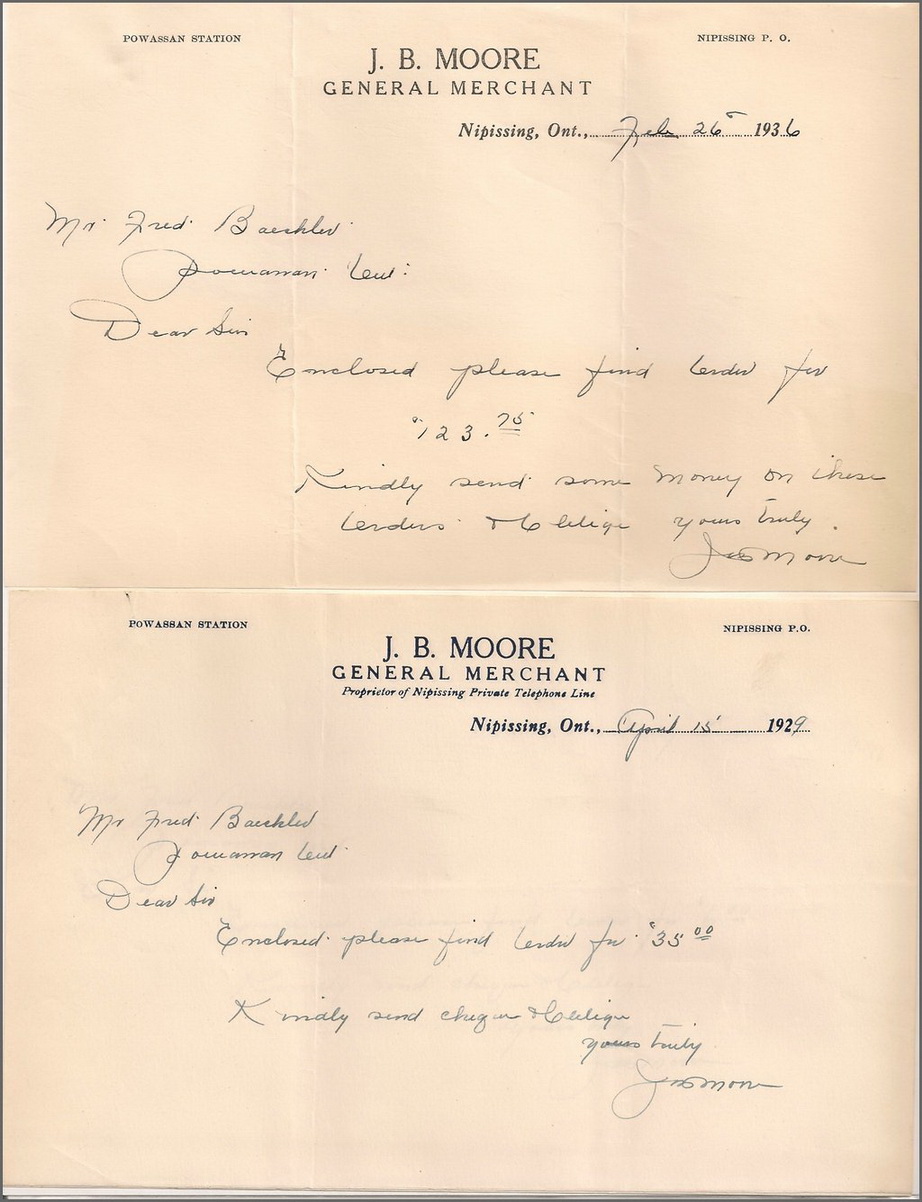 POWASSAN STATION
NIPISSING P. O.
J. B. MOORE
GENERAL MERCHANT
Nipissing, Ont., Feb 26 1936
Mr Fred Baechler
Powassan Ont
Dear Sir
Enclosed please find order for
$123.75
Kindly send some money on these
orders & Oblige yours truly.
JB Moore
POWASSAN STATION
NIPISSING P.O.
J. B. MOORE
GENERAL MERCHANT
Proprietor of Nipissing Private Telephone Line
Nipissing, Ont., April 15 1929
Mr Fred Baechler
Powassan Ont
Dear Sir
Enclosed please find order for $35 00
Kindly send cheque & Oblige
yours truly
JB Moore